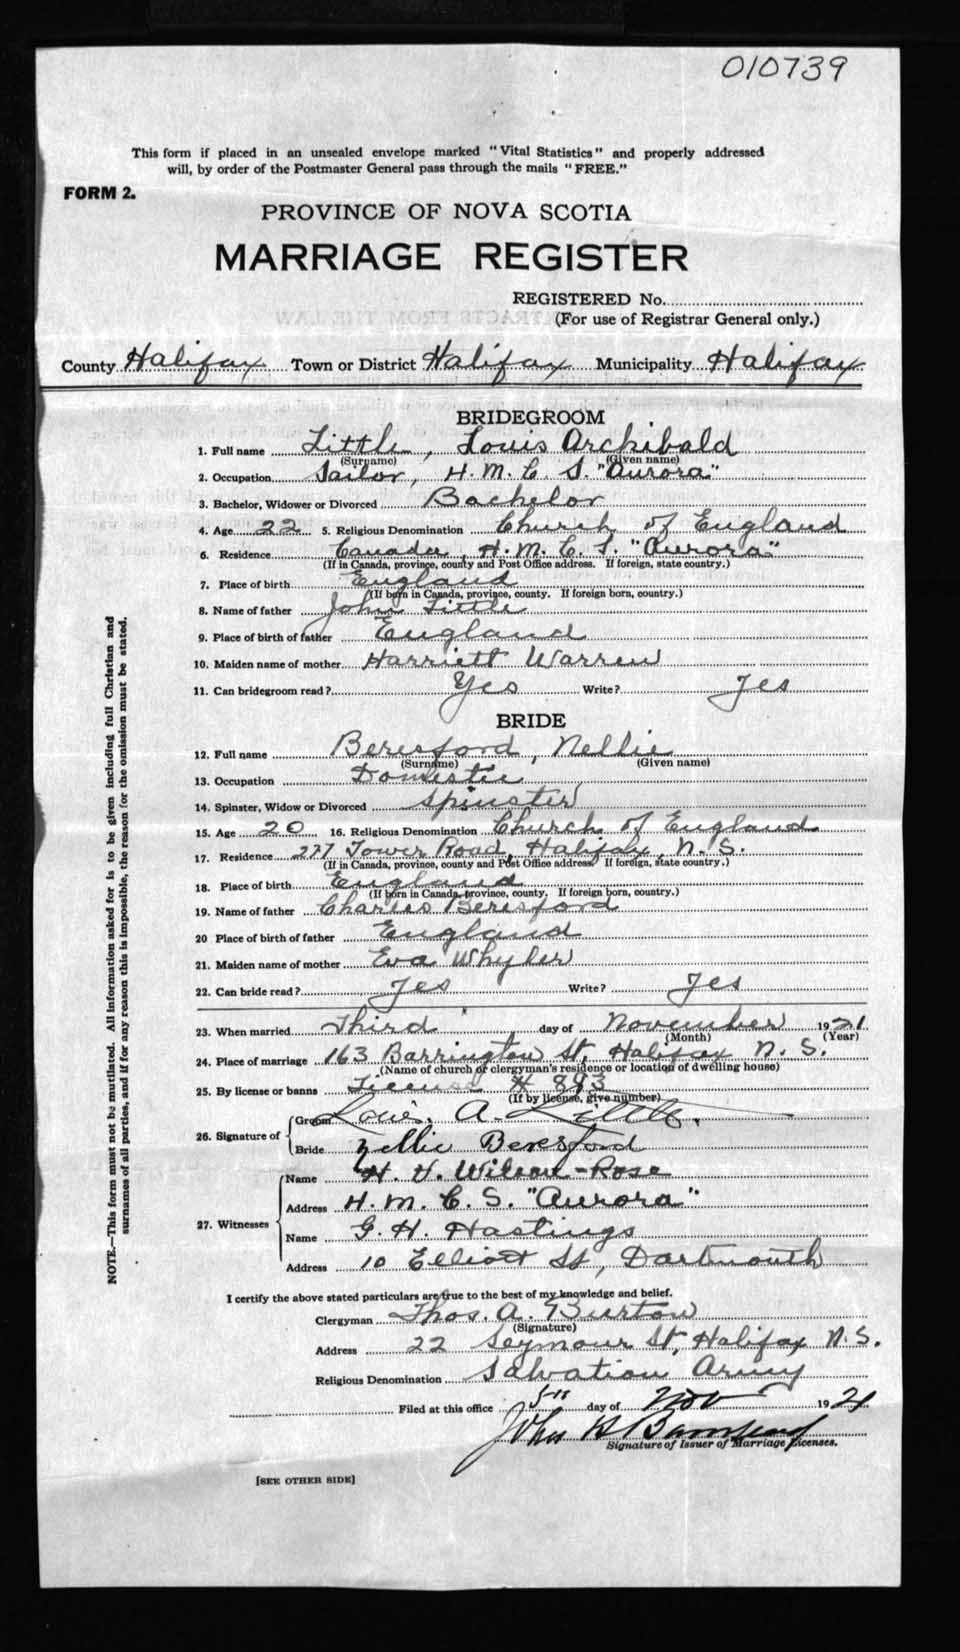 010739
This form if placed in an unsealed envelope marked "Vital Statistics" and properly addressed
will, by order of the Postmaster General pass through the mails "FREE."
FORM 2.
PROVINCE OF NOVA SCOTIA
MARRIAGE REGISTER
REGISTERED No.
(For use of Registrar General only.)
County Halifax Town or District Halifax Municipality Halifax
BRIDEGROOM
1. Full name Little, Louis Archibald
(Surname) (Given name)
2. Occupation Sailor, H. M. C. S. "Aurora"
3. Bachelor, Widower or Divorced Bachelor
4. Age 22 5. Religious Denomination Church of England
6. Residence Canada, H. M. C. S. "Aurora"
(If in Canada, province, county and Post Office address. If foreign, state country.)
7. Place of birth England
(If born in Canada, province, county. If foreign born, country.)
8. Name of father John Little
9. Place of birth of father England
10. Maiden name of mother Harriett Warren
11. Can bridegroom read? Yes Write? Yes
BRIDE
12. Full name Beresford, Nellie
(Surname) (Given name)
13. Occupation Domestic
14. Spinster, Widow or Divorced Spinster
15. Age 20 16. Religious Denomination Church of England
17. Residence 277 Tower Road, Halifax, N. S.
(If in Canada, province, county and Post Office address. If foreign, state country.)
18. Place of birth England
(If born in Canada, province, county. If foreign born, country.)
19. Name of father Charles Beresford
20 Place of birth of father England
21. Maiden name of mother Eva Whyler
22. Can bride read? Yes Write? Yes
23. When married Third day of November 1921
(Month) (Year)
24. Place of marriage 163 Barrington St, Halifax N. S.
(Name of church or clergyman's residence or location of dwelling house)
25. By license or banns License # 893
(If by license, give number)
26. Signature of
Groom Louis. A. Little.
Bride Nellie Beresford
27. Witnesses
Name H. V. Wilson-Rose
Address H. M. C. S. "Aurora"
Name G. H. Hastings
Address 10 Elliott St, Dartmouth
I certify the above stated particulars are true to the best of my knowledge and belief.
Clergyman Thos. A. Burton
(Signature)
Address 22 Seymour St, Halifax N. S.
Religious Denomination Salvation Army
Filed at this office 5th day of Nov 1921
John
Signature of Issuer of Marriage Licenses.
[SEE OTHER SIDE]
NOTE.—This form must not be mutilated. All information asked for is to be given including full Christian and
surnames of all parties, and if for any reason this is impossible, the reason for the omission must be stated.